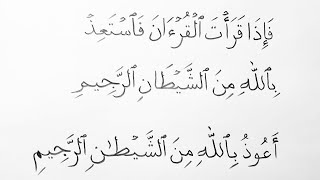 فَإِذَا قَرَأْتَ ٱلْقُرْءَانَ فَٱسْتَعِذْ
بِٱللَّهِ مِنَ ٱلشَّيْطَانِ ٱلرَّجِيمِ
أَعُوذُ بِٱللَّهِ مِنَ ٱلشَّيْطَٰنِ ٱلرَّجِيمِ